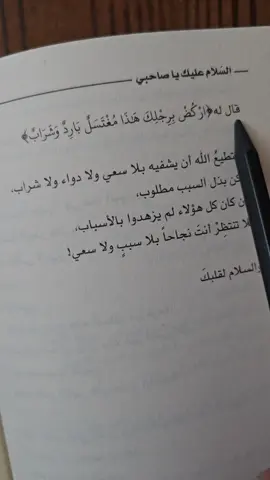 السّلام عليك يا صاحبي
قال له ﴿ارْكُضْ بِرِجْلِكَ هَذَا مُغْتَسَلٌ بَارِدٌ وَشَرَابٌ﴾
الله أن يشفيه بلا سعي ولا دواء ولا شراب،
بذل السبب مطلوب،
كان كل هؤلاء لم يزهدوا بالأسباب،
تنتظِرْ أنتَ نجاحاً بلا سببٍ ولا سعي!
والسلام لقلبكَ